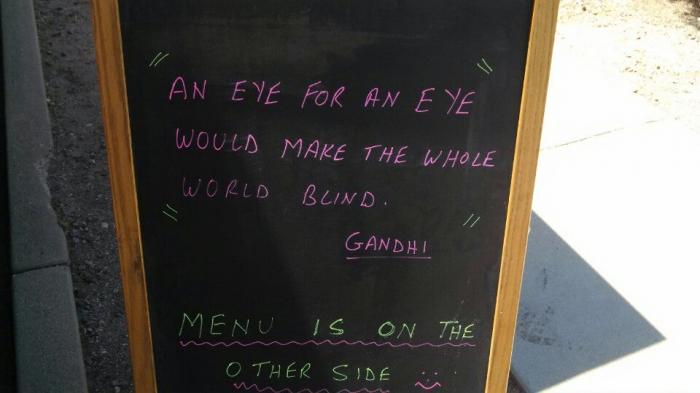 " AN EYE FOR AN EYE "
WOULD MAKE THE WHOLE
WORLD BLIND.
" "
GANDHI
MENU IS ON THE
OTHER SIDE :)